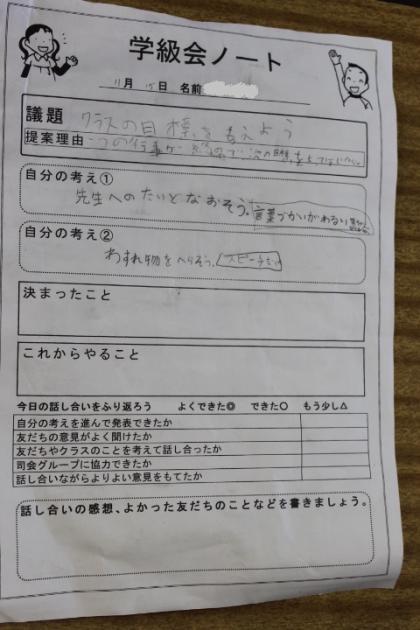 学級会ノート
11月 15日 名前
議題 クラスの目標を考えよう
提案理由 一つの行事が
自分の考え①
先生へのたいどなおそう。言葉づかいがわるい
自分の考え②
わすれ物をへらそう。スピーチ
決まったこと
これからやること
今日の話し合いをふり返ろう よくできた◎ できた○ もう少し△
自分の考えを進んで発表できたか
友だちの意見がよく聞けたか
友だちやクラスのことを考えて話し合ったか
司会グループに協力できたか
話し合いながらよりよい意見をもてたか
話し合いの感想、よかった友だちのことなどを書きましょう。